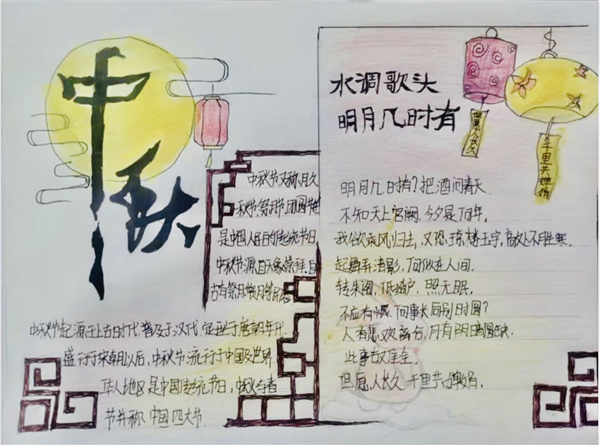 中秋
中秋节又称月夕
秋节祭月节团圆节
是中国人民的传统节日
中秋节源自天象崇拜,由
古有祭月赏月等
中秋节起源于上古时代普及于汉代定型于唐朝年代
盛行于宋朝以后,中秋节流行于中国及世界
华人地区是中国传统节日,中秋与春
节并称中国四大节.
水调歌头
明月几时有
千里共婵娟
明月几时有?把酒问青天
不知天上宫阙,今夕是何年,
我欲乘风归去,又恐琼楼玉宇,高处不胜寒.
起舞弄清影,何似在人间.
转朱阁,低绮户,照无眠.
不应有恨,何事长向别时圆?
人有悲欢离合,月有阴晴圆缺.
此事古难全
但愿人长久 千里共婵娟.